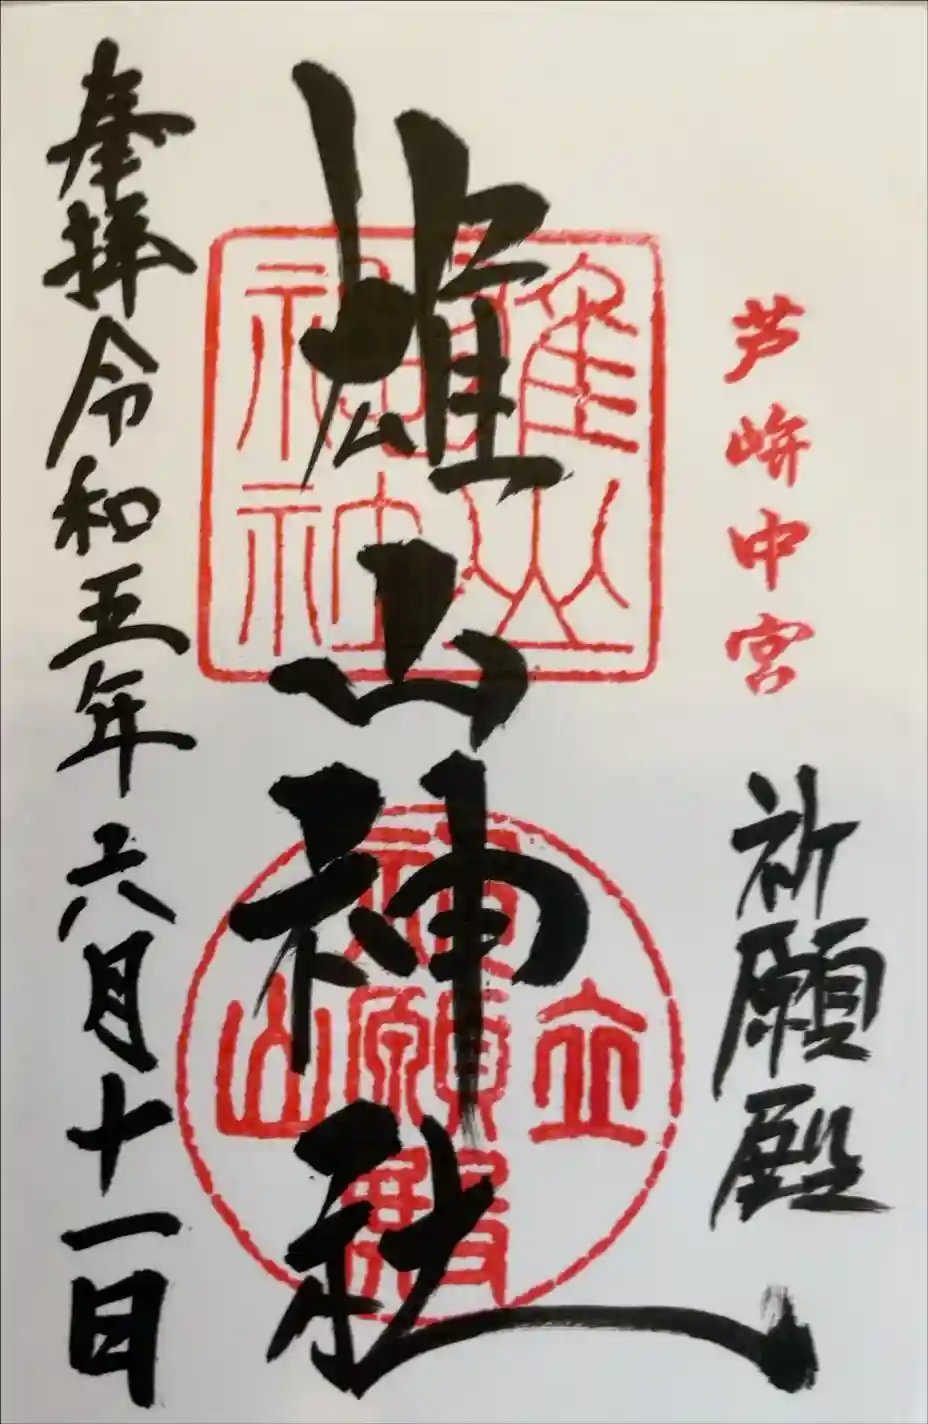 芦峅中宮
祈願殿
雄山神社
奉拝令和五年六月十一日
雄山
神社
立山
祈願殿